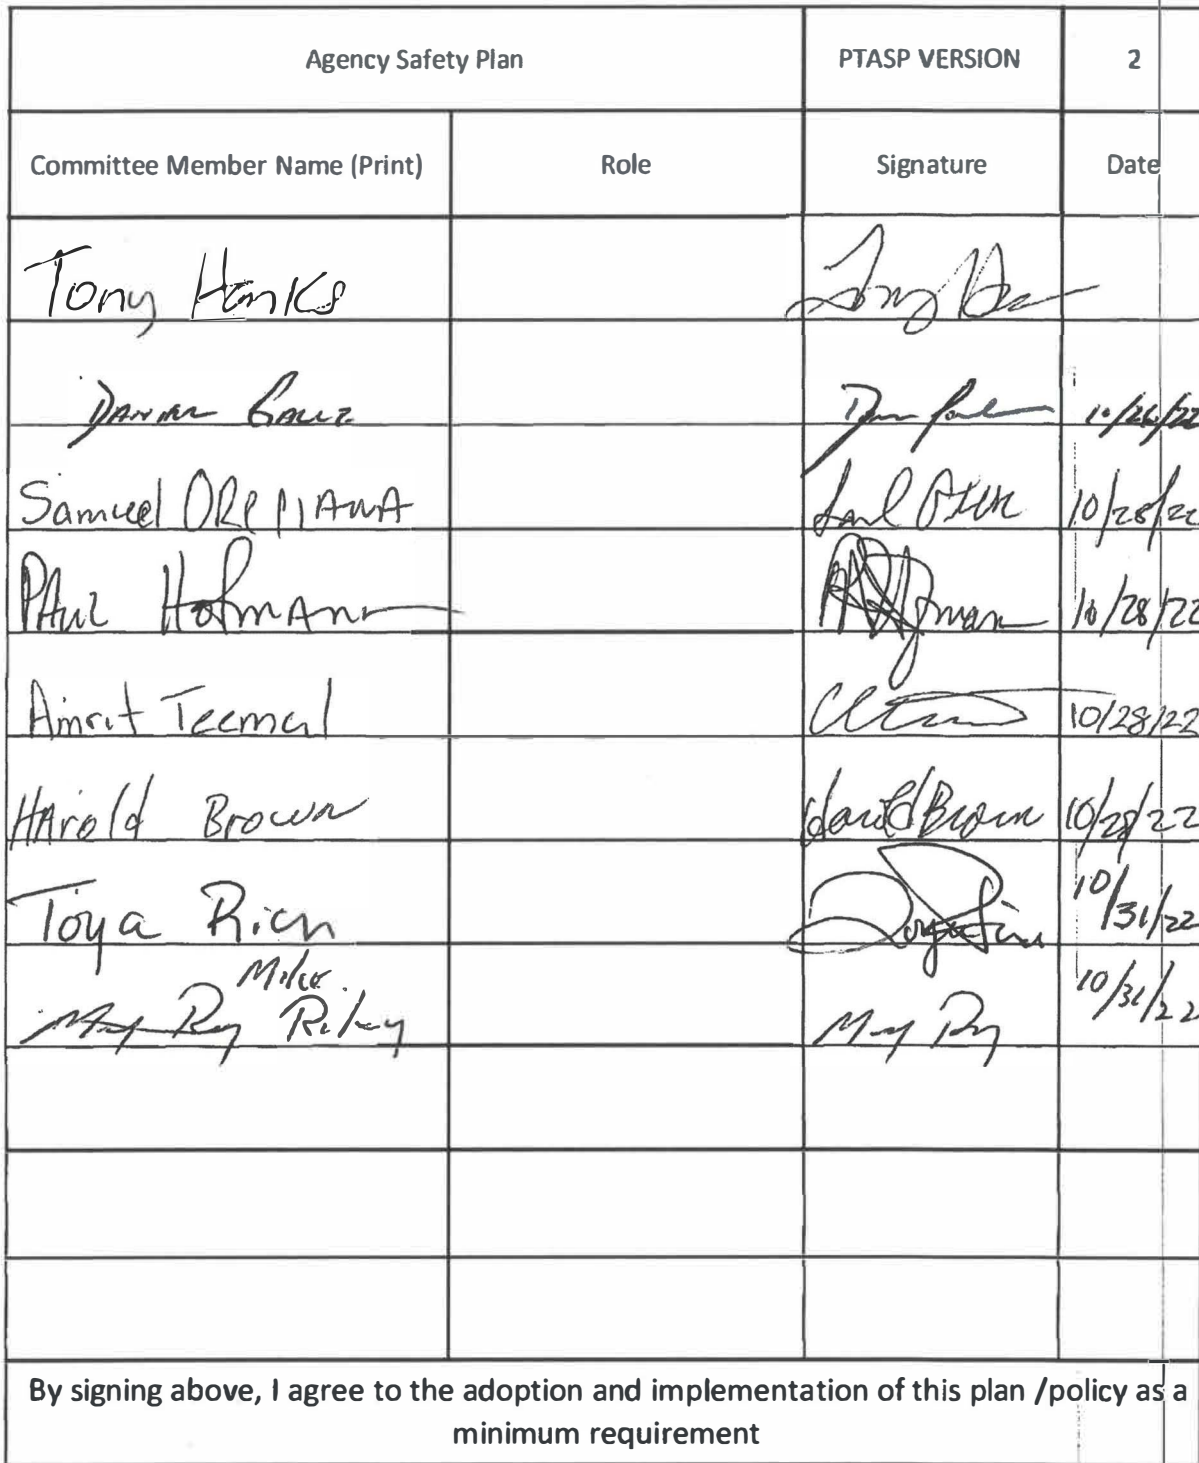 Agency Safety Plan PTASP VERSION 2
Committee Member Name (Print) Role Signature Date
Tony Hanks Tony
10/26/22
Samuel 10/28/22
Paul Hofmann 10/28/22
Amrit Teemal 10/28/22
Harold Brown Harold Brown 10/28/22
Toya Rich 10/31/22
Mike
Riley 10/31/22
By signing above, I agree to the adoption and implementation of this plan /policy as a
minimum requirement